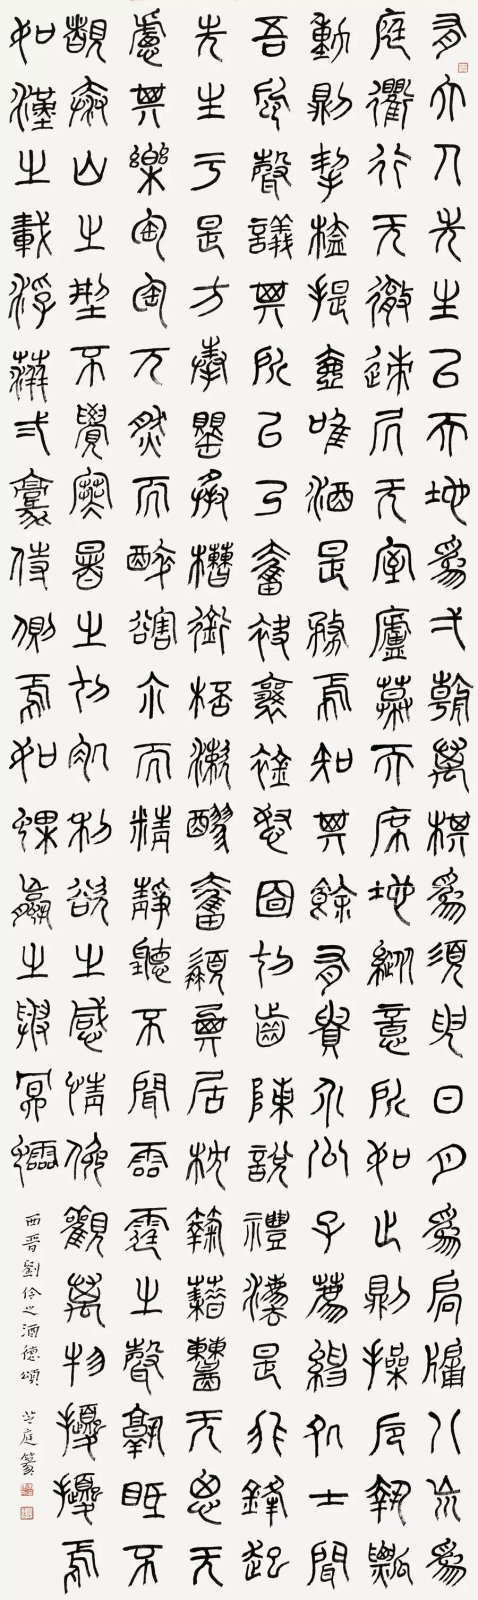 有大人先生以天地為弌朝萬棋為須臾日月為扃牖八巟為
庭衢行无徹迹凥无室廬幕天席地縱意所如止則操卮執瓢
動則挈榼提壺唯酒是務焉知其餘有貴介公子薦紳処士聞
吾風聲議其所以乃奮袂襄衽怒目切齒陳說禮灋是非鋒起
先生于是方捧罌承槽銜桮漱醪奮髯箕居枕麴藉糟无思无
慮其樂匋匋兀然而醉豁尒而精靜聽不聞雷霆之聲孰眡不
覩泰山之型不覺寒暑之切肌利欲之感情俛觀萬物擾擾焉
如漢之載浮萍弍豪侍側焉如蜾蠃之與冥蠕
西晉劉伶之酒德頌 芝庭篆